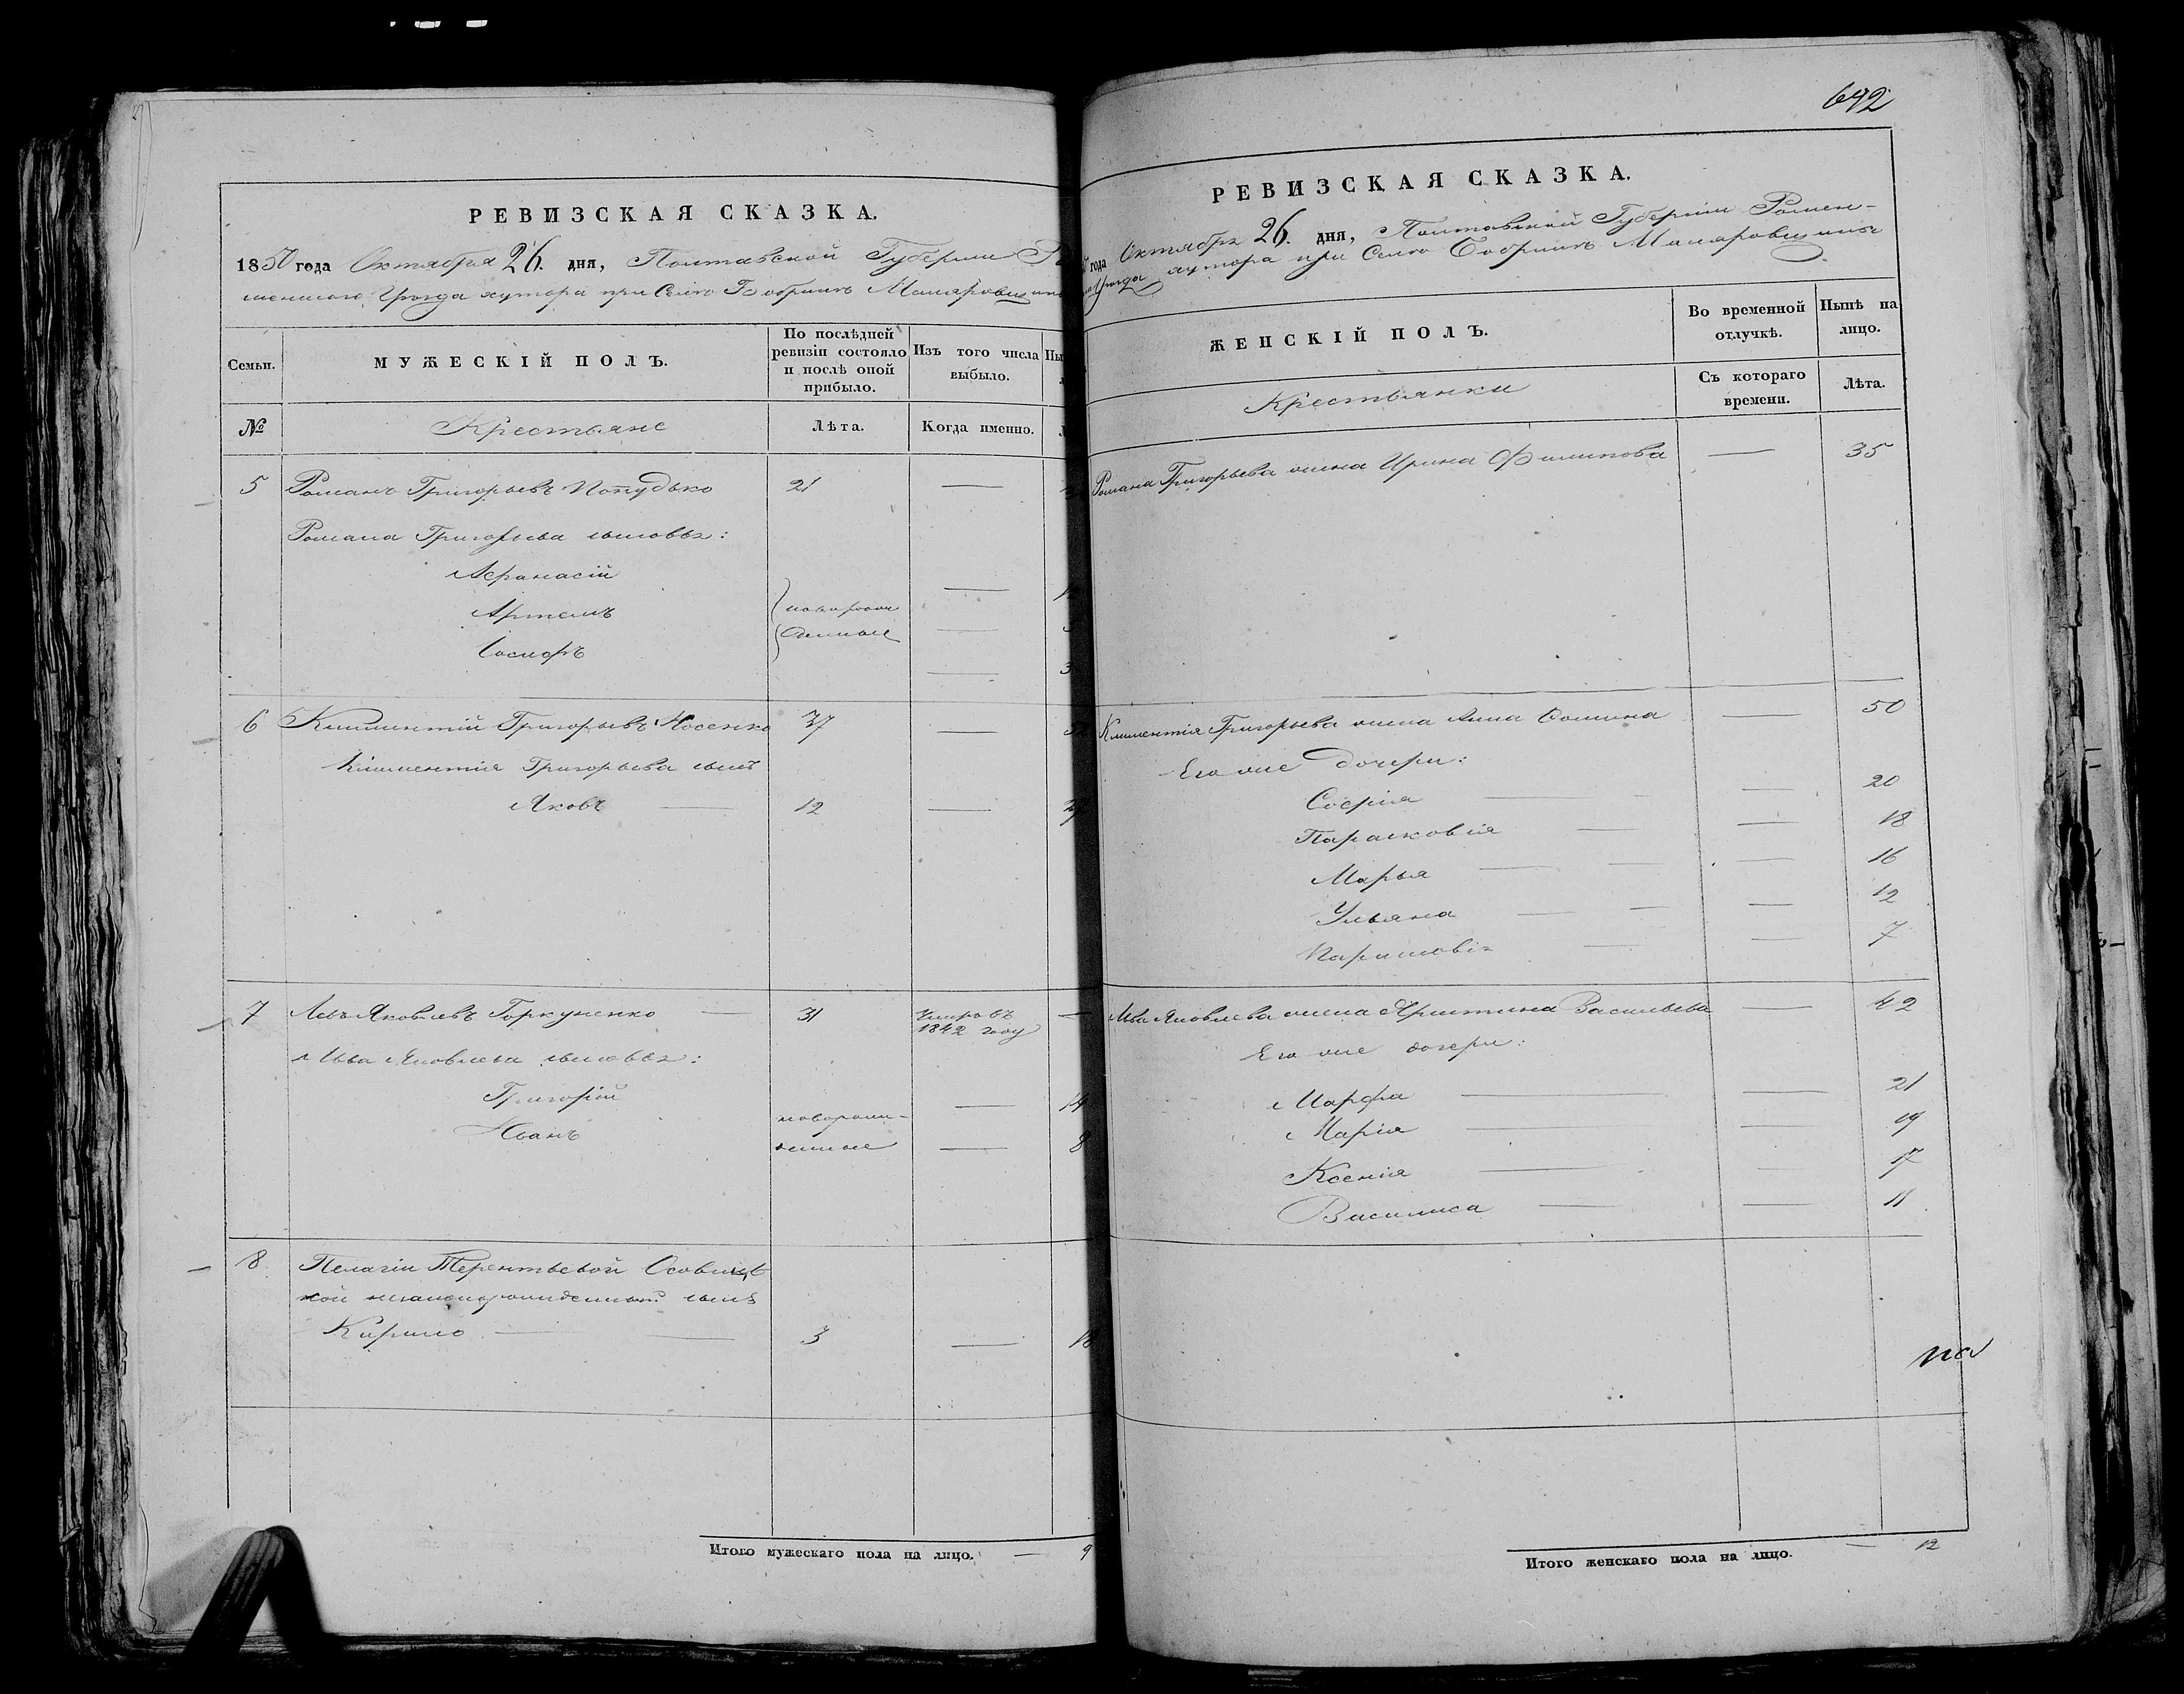 РЕВИЗСКАЯ СКАЗКА.
1850 года Октября 26. дня, Полтавской Губернии Ро
менскаго Уѣзда хутора при Селѣ Бобрикъ
Семьи.
МУЖЕСКІЙ ПОЛЪ.
По послѣдней ревизіи состояло и послѣ оной прибыло.
Изъ того числа выбыло.
№
Крестьяне
Лѣта.
Когда именно.
5 Романъ Григорьевъ 21 —
Романа Григорьева сыновья:
Афанасій —
Артемъ новорож —
Іосифъ денные — 3
6 Климентій Григорьевъ Носенко 37 —
Климентія Григорьева сынъ
Яковъ — 12 —
7 Левъ Яковлевъ Горкуненко — 31 Умеръ въ 1842 году —
Льва Яковлева сыновья:
Григорій новорож- — 14
Иванъ денные — 8
8 Пелагіи Терентьевой
сынъ
Кирило — 3 — 18
Итого мужескаго пола на лицо. — 9
692
РЕВИЗСКАЯ СКАЗКА.
года Октября 26. дня, Полтавской Губерніи Ромен-
Уѣзда хутора при Селѣ Бобрикъ
ЖЕНСКІЙ ПОЛЪ.
Во временной отлучкѣ.
Нынѣ на лицо.
Крестьянки
Съ котораго времени.
Лѣта.
Романа Григорьева жена Ирина Филипова — 35
Климентія Григорьева жена Анна Фомина — 50
Его же дочери:
Софія — 20
Парасковія — 18
Марья — 16
Ульяна — 12
Парасковія — 7
Льва Яковлева жена Христина Васильева — 42
Его же дочери:
Марфа — 21
Марія — 19
Ксенія — 17
Василиса — 11
Итого женскаго пола на лицо. — 12